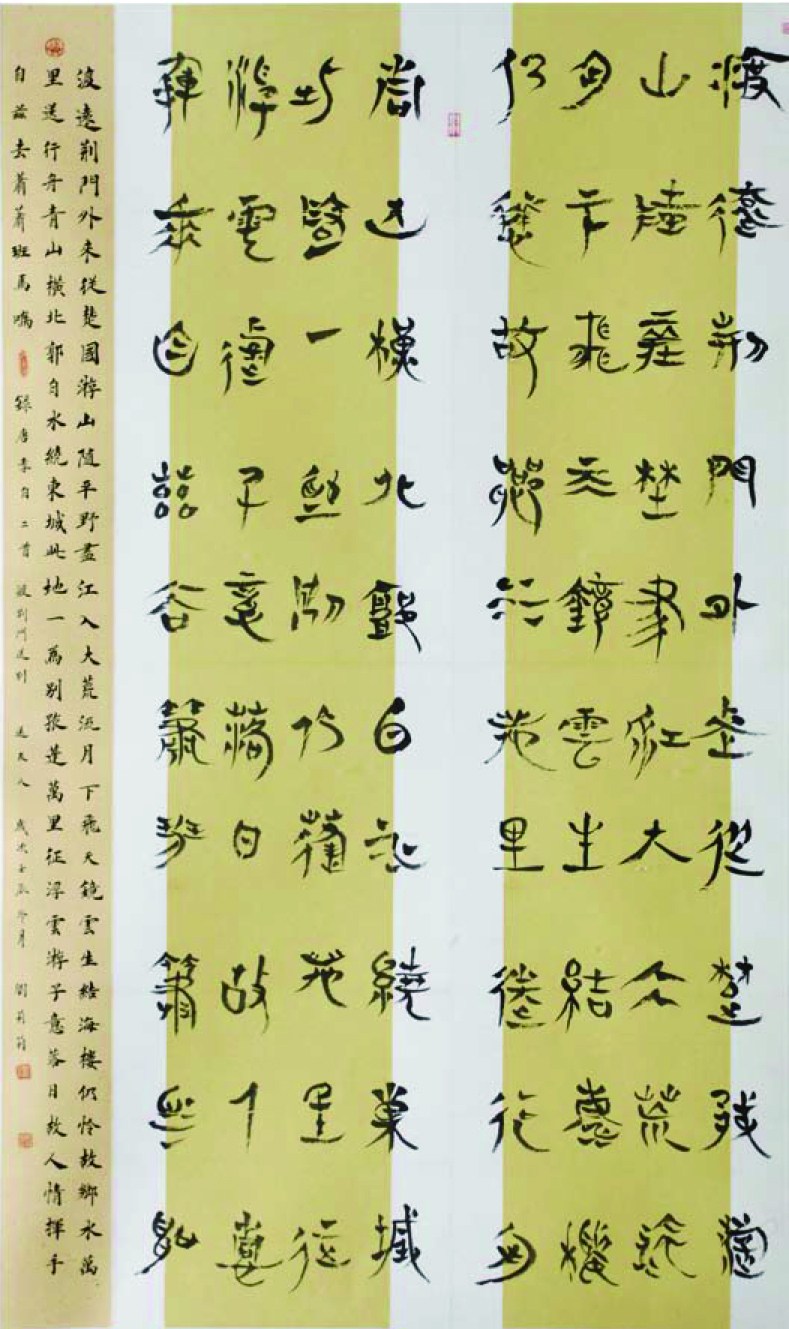 渡遠荊門外來從楚國游
山隨平野盡江入大荒流
月下飛天鏡雲生結海樓
仍憐故鄉水萬里送行舟
青山橫北郭白水繞東城
此地一爲別孤蓬萬里征
浮雲游子意落日故人情
揮手自茲去蕭蕭班馬鳴
渡遠荊門外來從楚國游山隨平野盡江入大荒流月下飛天鏡雲生結海樓仍憐故鄉水萬
里送行舟青山橫北郭白水繞東城此地一爲別孤蓬萬里征浮雲游子意落日故人情揮手
自茲去蕭蕭班馬鳴 錄唐李白二首 渡荊門送別 送友人